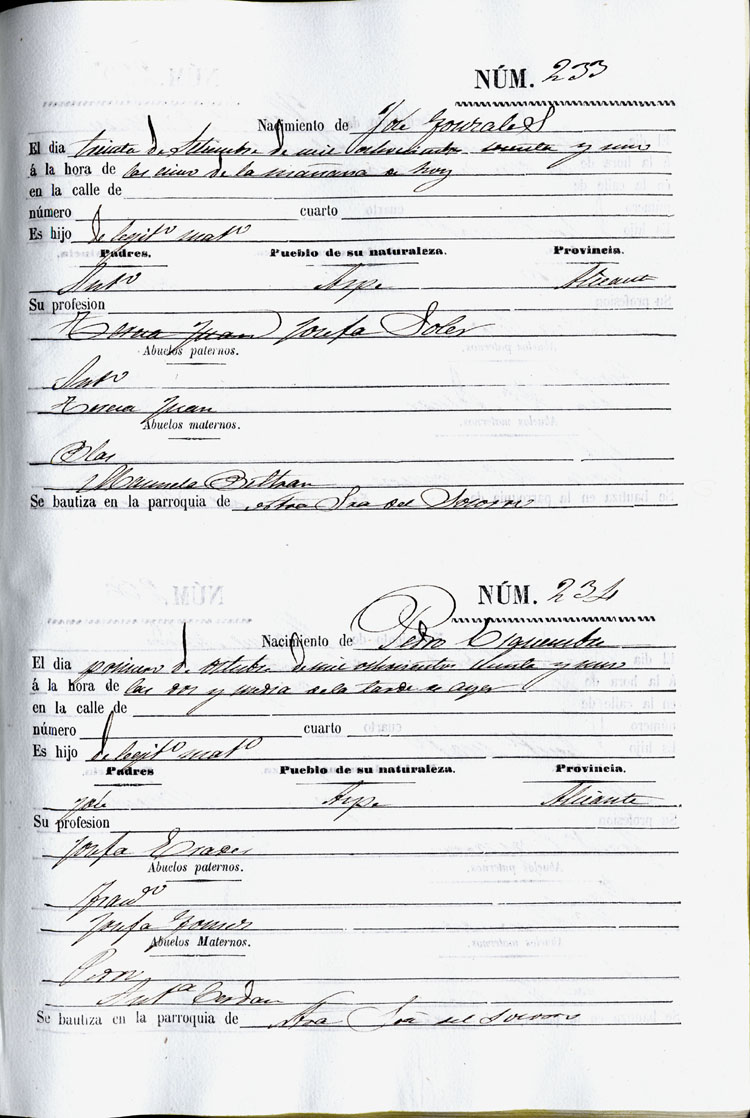 NÚM. 233
Nacimiento de José Gonzales
El dia treinta de Setiembre de mil ochocientos sesenta y uno
á la hora de las cinco de la mañana de hoy
en la calle de
número cuarto
Es hijo de legit.º mat.º
Padres. Pueblo de su naturaleza. Provincia.
Ant.º Aspe Alicante
Su profesion
Juan Josefa Soler
Abuelos paternos.
Ant.º
Teresa Juan
Abuelos maternos.
Blas
Manuela Beltran
Se bautiza en la parroquia de Ntra Sra del Socorro
NÚM. 234
Nacimiento de Pedro
El dia primero de octubre de mil ochocientos sesenta y uno
á la hora de las dos y media de la tarde de ayer
en la calle de
número cuarto
Es hijo de legit.º mat.º
Padres Pueblo de su naturaleza. Provincia.
José Aspe Alicante
Su profesion
Josefa
Abuelos paternos.
Fran.co
Josefa
Abuelos Maternos.
Pedro
Ant.ª Cerdan
Se bautiza en la parroquia de Ntra Sra del Socorro